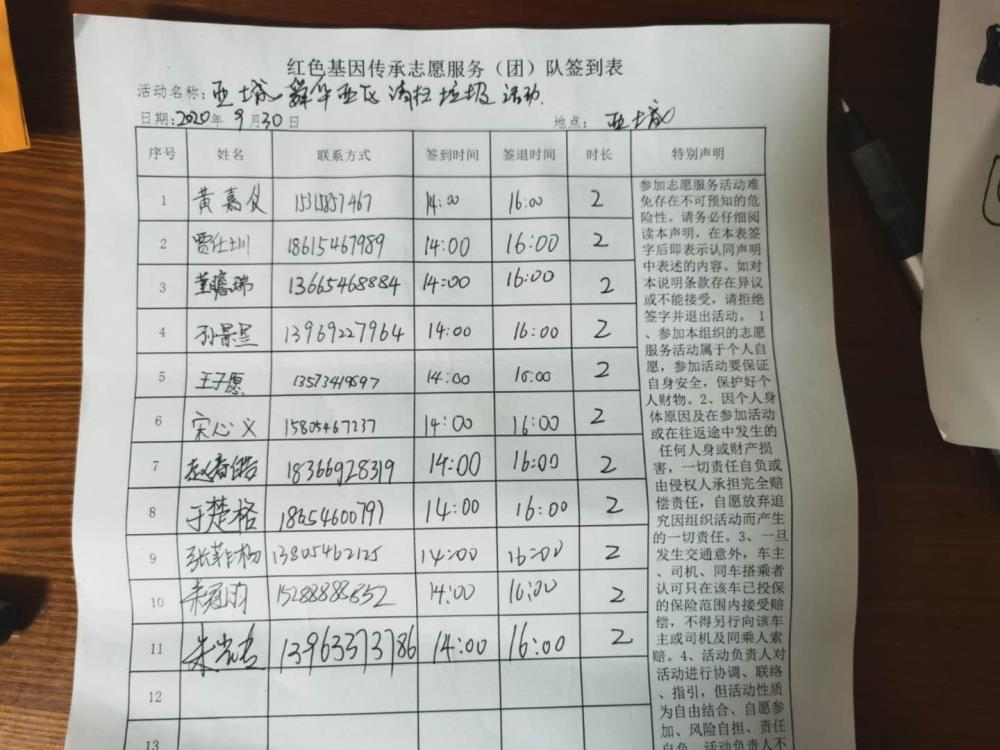 红色基因传承志愿服务（团）队签到表
活动名称：亚 清扫垃圾活动.
日期：2020年9月30日 地点：
序号 姓名 联系方式 签到时间 签退时间 时长 特别声明
1 黄嘉仪 14:00 16:00 2
2 贾仕川 18615467989 14:00 16:00 2
3 董 瑞 13665468884 14:00 16:00 2
4 孙景 13969227964 14:00 16:00 2
5 王子愿 14:00 16:00 2
6 宋心义 15805467237 14:00 16:00 2
7 赵 18366928319 14:00 16:00 2
8 于楚格 18654600797 14:00 16:00 2
9 张 杨 13805462125 14:00 16:00 2
10 朱冠 14:00 16:00 2
11 朱 13963373786 14:00 16:00 2
12
13
参加志愿服务活动难
免存在不可预知的危
险性。请务必仔细阅
读本声明，在本表签
字后即表示认同声明
中表述的内容。如对
本说明条款存在异议
或不能接受，请拒绝
签字并退出活动。 1
、参加本组织的志愿
服务活动属于个人自
愿，参加活动要保证
自身安全，保护好个
人财物。2、因个人身
体原因及在参加活动
或在往返途中发生的
任何人身或财产损
害，一切责任自负或
由侵权人承担完全赔
偿责任，自愿放弃追
究因组织活动而产生
的一切责任。3、一旦
发生交通意外，车主
、司机、同车搭乘者
认可只在该车已投保
的保险范围内接受赔
偿，不得另行向该车
主或司机及同乘人索
赔。4、活动负责人对
活动进行协调、联络
、指引，但活动性质
为自由结合、自愿参
加、风险自担、责任
自负。活动负责人不